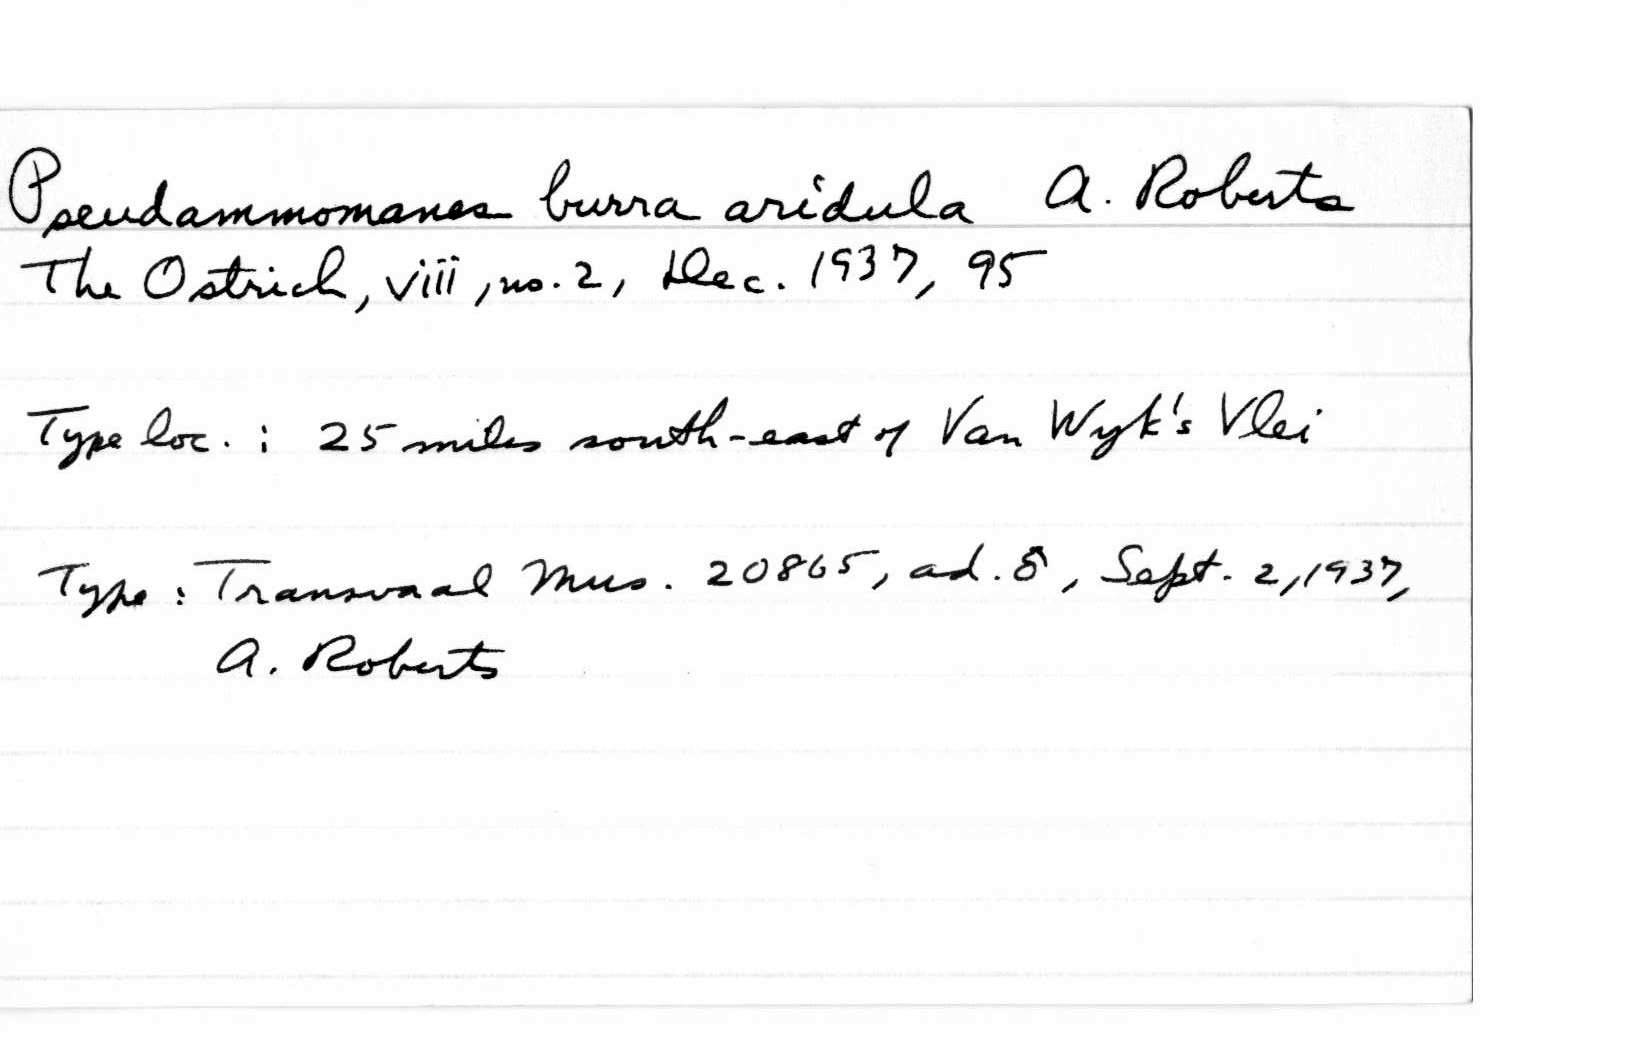 Pseudammomanes burra aridula A. Roberts
The Ostrich, viii, no. 2, Dec. 1937, 95
Type loc. : 25 miles south-east of Van Wyk's Vlei
Type : Transvaal Mus. 20865, ad. ♂, Sept. 2, 1937,
A. Roberts